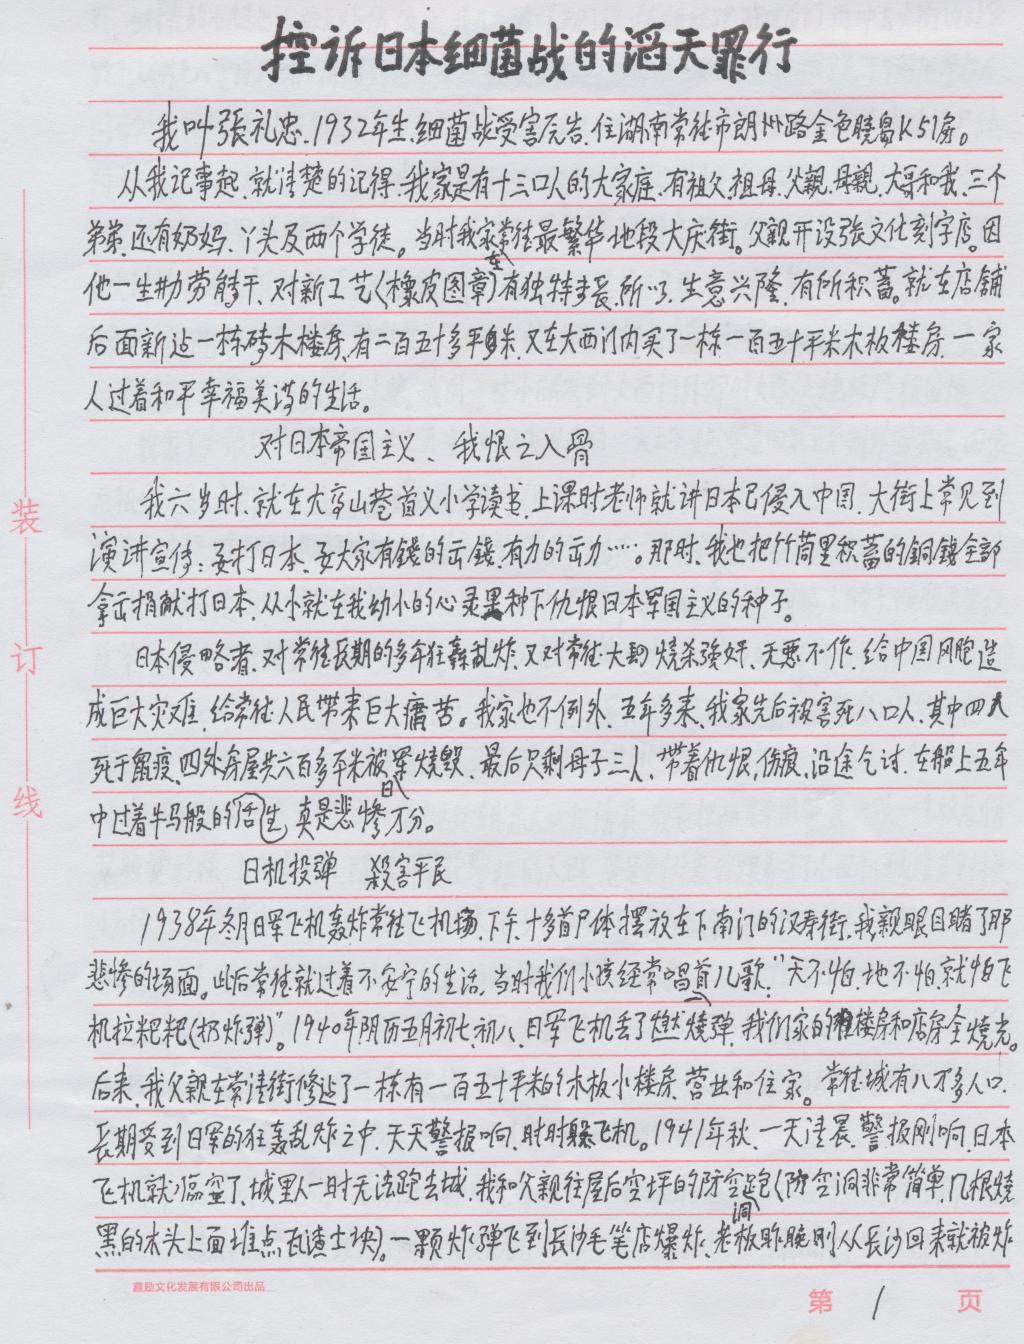 控诉日本细菌战的滔天罪行
我叫張礼忠、1932年生、细菌战受害元告、住湖南常德市朗州路金色晓岛K51房。
从我记事起、就清楚的记得、我家是有十三口人的大家庭、有祖父、祖母、父親、母親、大哥和我、三个
弟弟、还有奶妈、丫头及两个学徒。当时我家在常德最繁华地段大庆街。父親开设张文化刻字店。因
他一生勤劳能干、对新工艺(橡皮图章)有独特专长、所以、生意兴隆、有所积蓄。就在店铺
后面新造一栋砖木楼房、有二百五十多平米、又在大西门内买了一栋一百五十平米木板楼房、一家
人过着和平幸福美满的生活。
对日本帝国主义、我恨之入骨
我六岁时、就在大高山巷首义小学读书、上课时老师就讲日本已侵入中国、大街上常见到
演讲宣传：要打日本、要大家有錢的出錢、有力的出力……。那时、我也把竹筒里积蓄的銅錢全部
拿出捐献打日本、从小就在我幼小的心灵里种下仇恨日本军国主义的种子。
日本侵略者、对常德長期的多年狂轰乱炸、又对常德大肆烧杀强奸、无悪不作、给中国同胞造
成巨大灾难、给常德人民带来巨大痛苦。我家也不例外、五年多来、我家先后被害死八口人、其中四人
死于鼠疫、四处房屋共六百多平米被日军烧毁、最后只剩母子三人、带着仇恨、伤痕、沿途乞讨、在船上五年
中过着牛马般的生活、真是悲惨万分。
日机投弹 殺害平民
1938年冬月日军飞机轰炸常德飞机场、下午、十多首尸体摆放在下南门的汉寿街、我親眼目睹了那
悲惨的场面。此后常德就过着不安宁的生活、当时我们小孩经常唱一首儿歌：“天不怕、地不怕、就怕飞
机拉粑粑(扔炸弹)”。1940年阴历五月初七、初八、日军飞机丢了燃燒弹、我们家的楼房和店房全燒光。
后来、我父親在常清街修造了一栋有一百五十平米的木板小楼房、营业和住家。常德城有八万多人口、
長期受到日军的狂轰乱炸之中、天天警报响、时时躲飞机。1941年秋、一天清晨、警报刚响、日本
飞机就临空了、城里人一时无法跑出城、我和父親往屋后空坪的防空洞跑(防空洞非常简单、几根烧
黑的木头上面堆点瓦渣土块)。一颗炸弹飞到長沙毛笔店爆炸、老板昨晚刚从長沙回来就被炸
装
订
线
鑫励文化发展有限公司出品
第 1 页